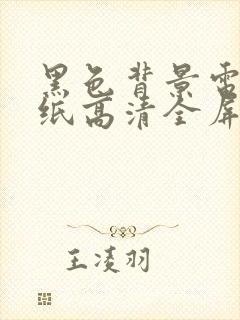 黑色背景
纸高清全屏
王凌羽